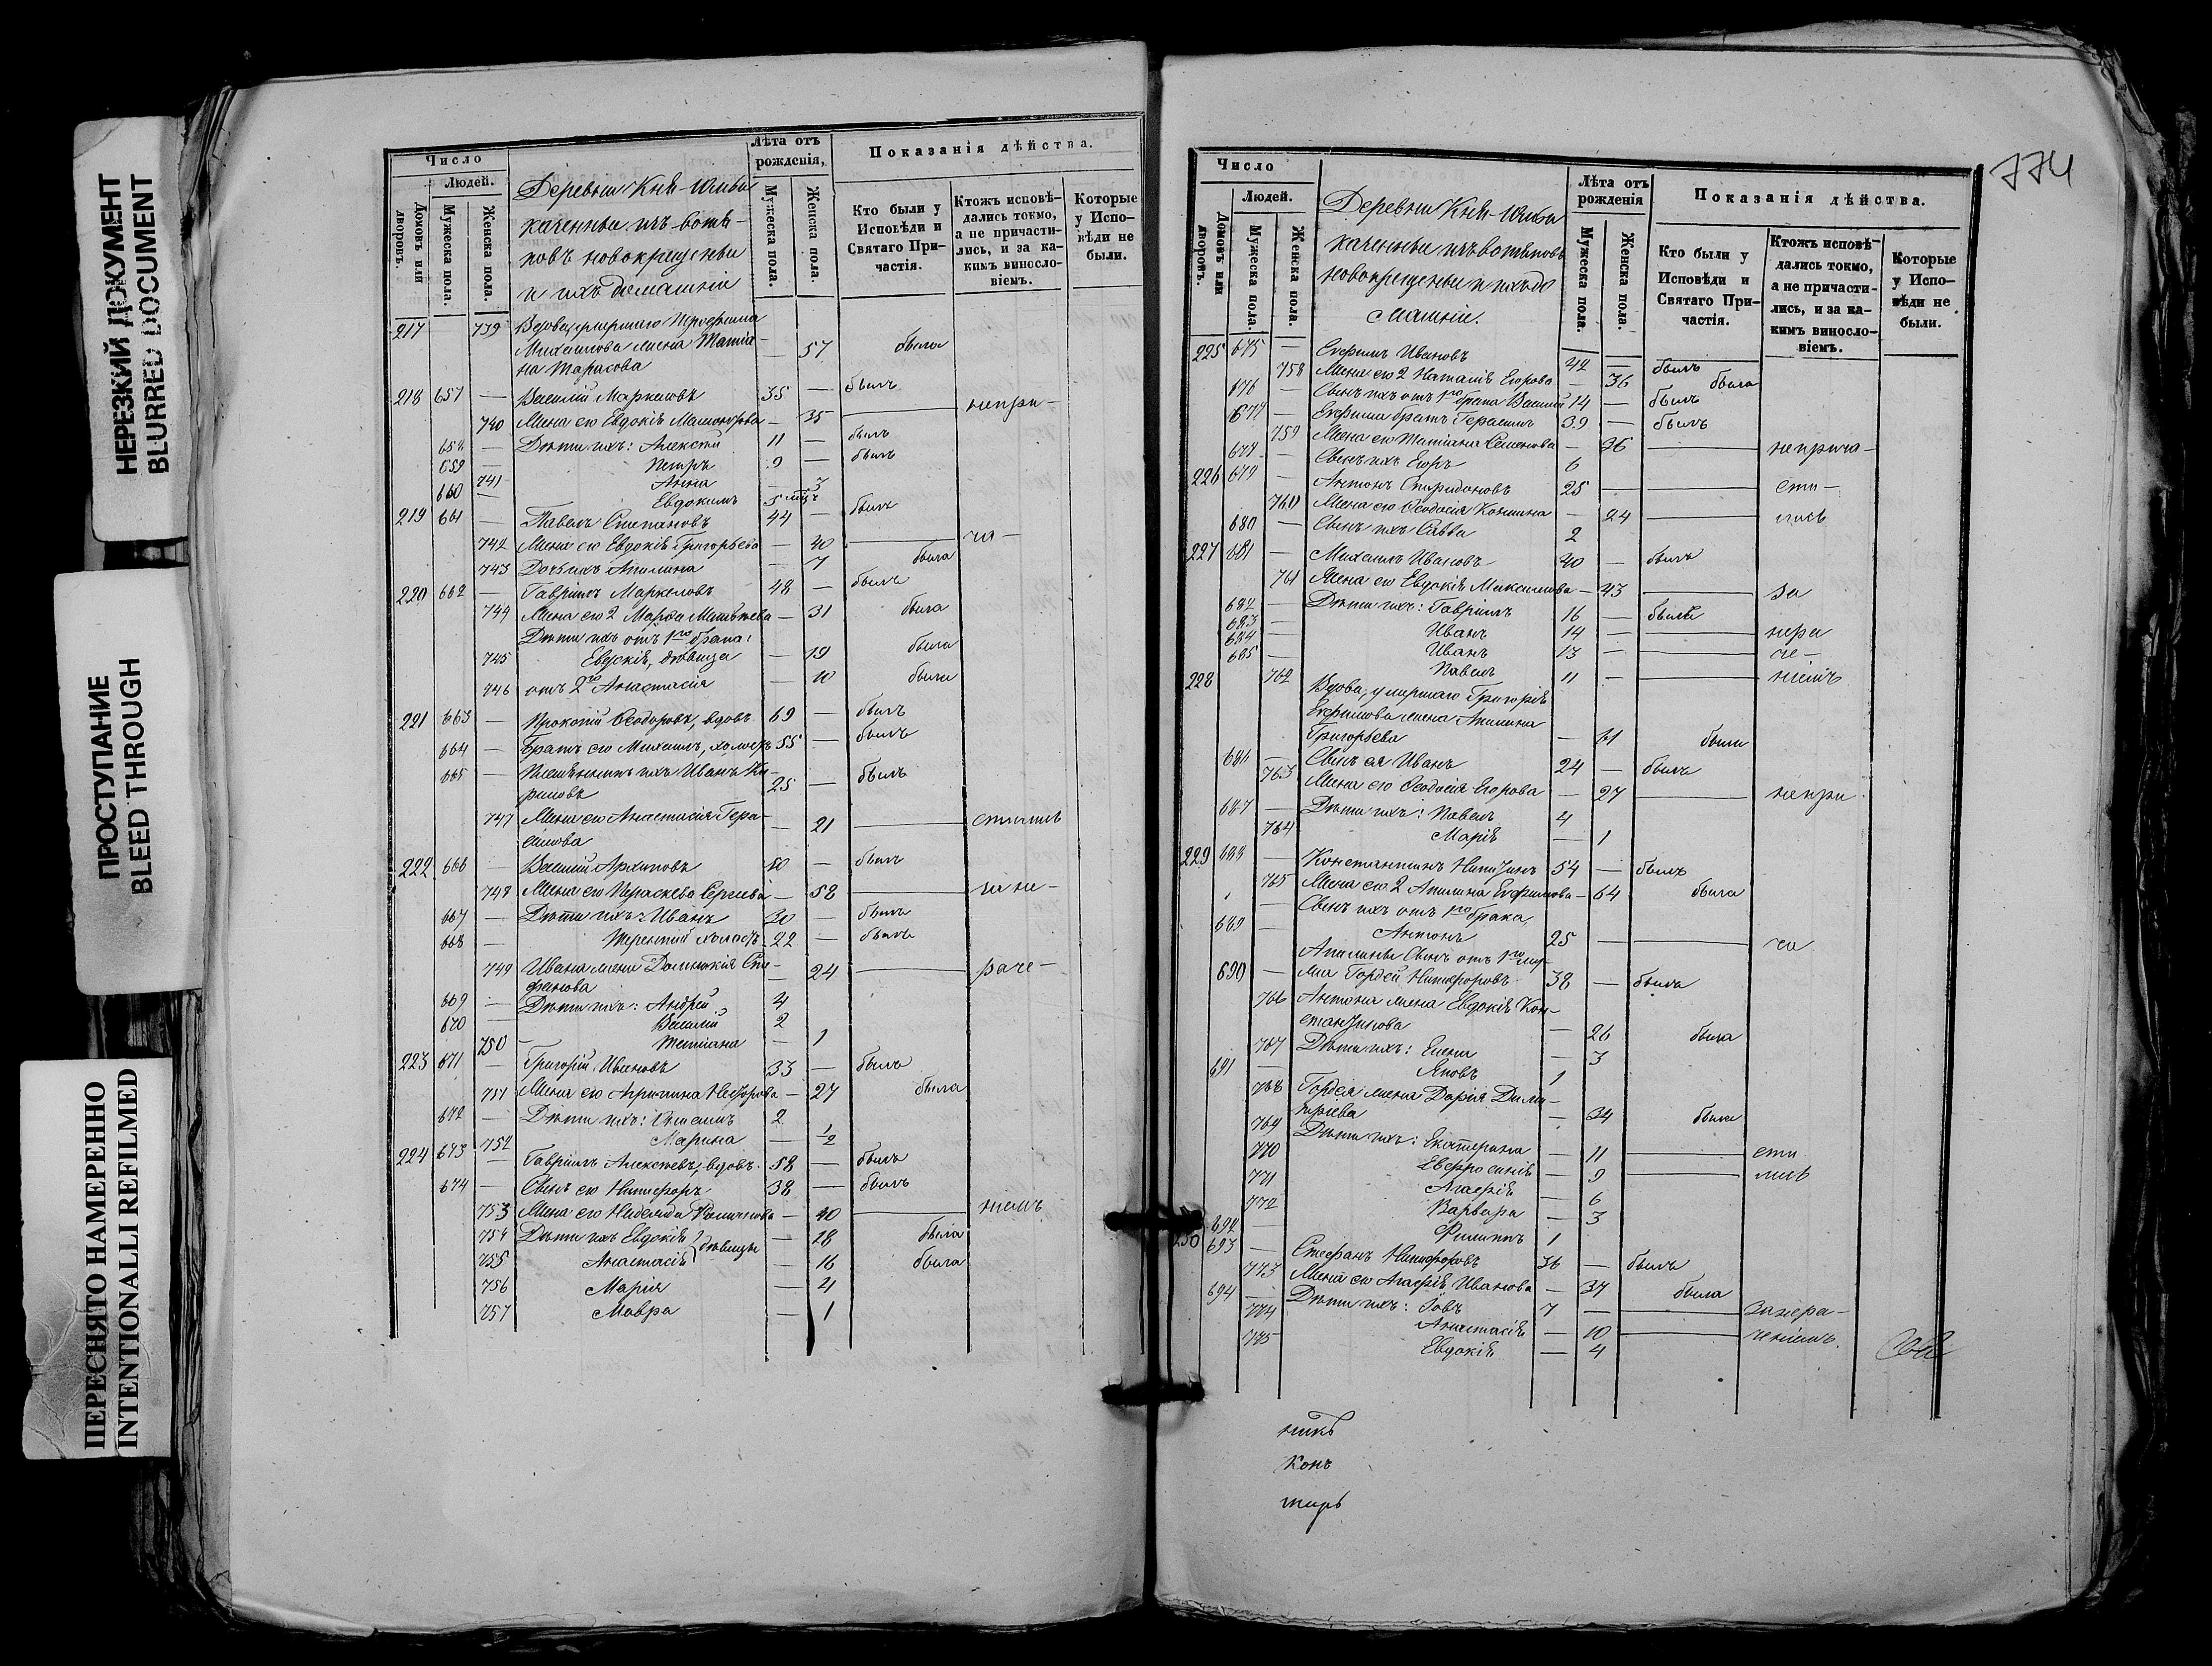 НЕРЕЗКИЙ ДОКУМЕНТ
BLURRED DOCUMENT
ПРОСТУПАНИЕ
BLEED THROUGH
ПЕРЕСНЯТО НАМЕРЕННО
INTENTIONALLI REFILMED
Число
Людей.
Домовъ или дворовъ.
Мужеска пола.
Женска пола.
Деревни
каченные изъ вотя-
ковъ новокрещены
и ихъ домашніе
Лѣта отъ рожденія,
Мужеска пола.
Женска пола.
Показанія дѣйства.
Кто были у Исповѣди и Святаго При-частія.
Ктожъ исповѣ-дались токмо, а не причасти-лись, и за ка-кимъ винословіемъ.
Которые у Испо-вѣди не были.
217 739 Вдова, умершаго
Михаилова жена Татія-
на Тарасова — 57 была
218 657 — Василій Маркеловъ 35 — былъ
740 Жена его Евдокія — 35 — непри-
658 — Дѣти ихъ: Алексѣй 11 — былъ
659 — Петръ 9 — былъ
741 Анна — 3
660 — Евдокимъ 5 мцъ
219 661 — Павелъ Степановъ 44 — былъ
742 Жена его Евдокія Григорьева — 40 — ча-
743 Дочь ихъ Акилина — 7 была
220 662 — Гавріилъ Маркеловъ 48 — былъ
744 Жена его 2 Марѳа Матвѣева — 31 была
Дѣти ихъ отъ 1го брака:
745 Евдокія, дѣвица — 19 была
746 отъ 2го Анастасія — 10 была
221 663 — Прокопій Ѳеодоровъ, вдовъ 69 — былъ
664 — Братъ его Михаилъ, холостъ 55 — былъ
665 — Племянникъ ихъ Иванъ Ки-
риловъ 25 — былъ
747 Жена его Анастасія Гера-
симова — 21 — стились
222 666 — Василій Архиповъ 60 — былъ
748 Жена его Параскева Сергѣева — 58 — за не-
667 — Дѣти ихъ: Иванъ 30 — былъ
668 — Терентій холостъ 22 — былъ
749 Ивана жена Домникія Сте-
фанова — 24 — раче-
669 — Дѣти ихъ: Андрей 4
670 — Василій 2
750 — Татіана — 1
223 671 — Григорій Ивановъ 33 — былъ
751 Жена его Агрипина — 27 была
672 — Дѣти ихъ: 2
752 Марина — 1/2
224 673 — Гавріилъ Алексѣевъ, вдовъ 58 — былъ
674 — Сынъ его Никифоръ 38 — былъ
753 Жена его Надежда — 40 — ніемъ
754 Дѣти ихъ Евдокія } дѣвицы — 18 была
755 Анастасія — 16 была
756 Марія — 4
757 Мавра — 1
774
Число
Людей.
Домовъ или дворовъ.
Мужеска пола.
Женска пола.
Деревни
каченные изъ вотяковъ
новокрещены и ихъ до
машніе.
Лѣта отъ рожденія
Мужеска пола.
Женска пола.
Показанія дѣйства.
Кто были у Исповѣди и Святаго При-частія.
Ктожъ исповѣ-дались токмо, а не причасти-лись, и за ка-кимъ винословіемъ.
Которые у Испо-вѣди не были.
225 675 — Ефимъ Ивановъ 42 — былъ
758 Жена его 2 Наталія Егорова — 36 была
676 Сынъ ихъ отъ 1го брака Василій 14 — былъ
677 — Ефима братъ Герасимъ 39 — былъ
759 Жена его Татіана Семенова — 36 — неприча-
678 — Сынъ ихъ Егоръ 6
226 679 — Антонъ Спиридоновъ 25 — сти-
760 Жена его Ѳеодосія — 24 — лись
680 — Сынъ ихъ Савва 2
227 681 — Михаилъ Ивановъ 40 — былъ
761 Жена его Евдокія Максимова — 43 — за
682 — Дѣти ихъ: Гавріилъ 16 — былъ
683 — Иванъ 14 — нера
684 — Иванъ 13 — че-
685 — Павелъ 11 — ніемъ
228 762 Вдова, умершаго Григорія
Ефимова жена Акилина
Григорьева — 61 была
686 — Сынъ ея Иванъ 24 — былъ
763 Жена его Ѳеодосія Егорова — 27 — непри
687 — Дѣти ихъ: Павелъ 4
764 Марія — 1
229 688 — Константинъ 54 — былъ
765 Жена его 2 Акилина Ефимова — 64 была
— Сынъ ихъ отъ 1го брака,
689 — Антонъ 25 — ча
Акилины сынъ отъ 1го му-
690 — жа Гордей Никифоровъ 38 — былъ
766 Антона жена Евдокія Кон-
стантинова — 26 была
767 Дѣти ихъ: Елена — 3
691 — Яковъ 1
768 Гордея жена Дарія Дими-
тріева — 34 была
769 Дѣти ихъ: Екатерина — 11 — сти
770 Евфросинія — 9 — лись
771 Агафія — 6
772 Варвара — 3
692 — Филиппъ 1
230 693 — Стефанъ Никифоровъ 36 — былъ
773 Жена его Агафія Иванова — 37 была
694 — Дѣти ихъ: Іовъ 7 — за нера-
774 Анастасія — 10 — ченіемъ.
775 Евдокія — 4